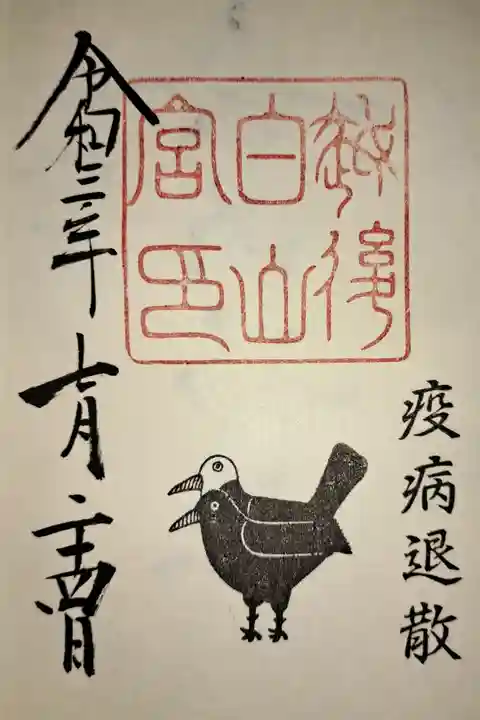 疫病退散
越後
白山
宮印
令和三年七月二十四日